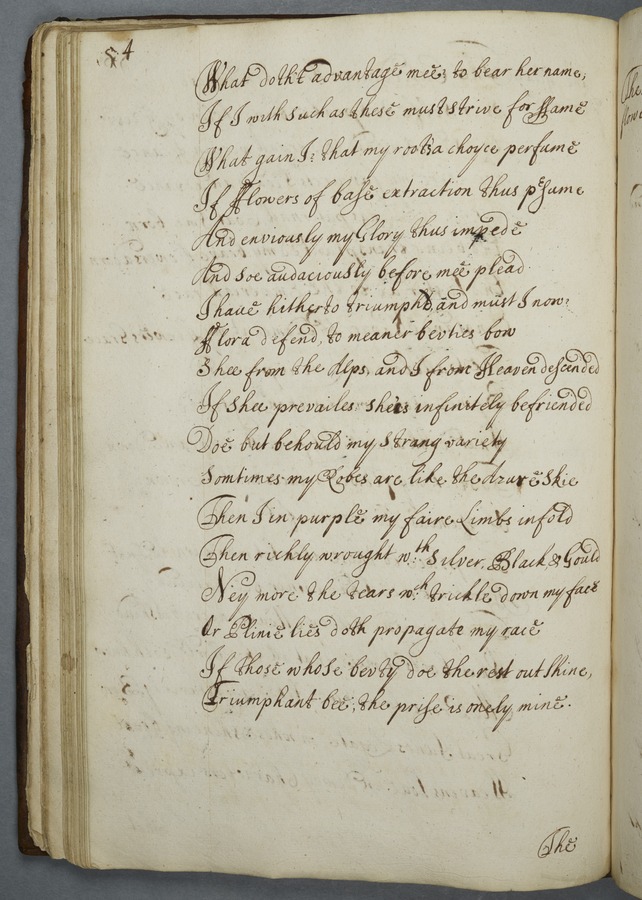 54
What doth't advantage mee; to bear her name,
If I with such as these must strive for ffame
What gain I: that my root's a choyce perfume
If fflowers of base extraction thus p'sume
And enviously my Glory thus impede
And soe audaciously before mee plead
I have hitherto triumpht, and must I now:
fflora defend, to meaner bevties bow
Shee from the Alps, and I from Heaven descended
If Shee prevailes she is infinitely befriended
Doe but behould my strang variety
Somtimes my Robes are like the Azure Skie
Then I in purple my faire Limbs infold
Then richly wrought wth Silver, Black, & Gould
Ney more the tears wch trickle down my face
Or Plinie lies doth propagate my race
If those whose bevty doe the rest out shine,
Triumphant bee; the prise is onely mine.
The